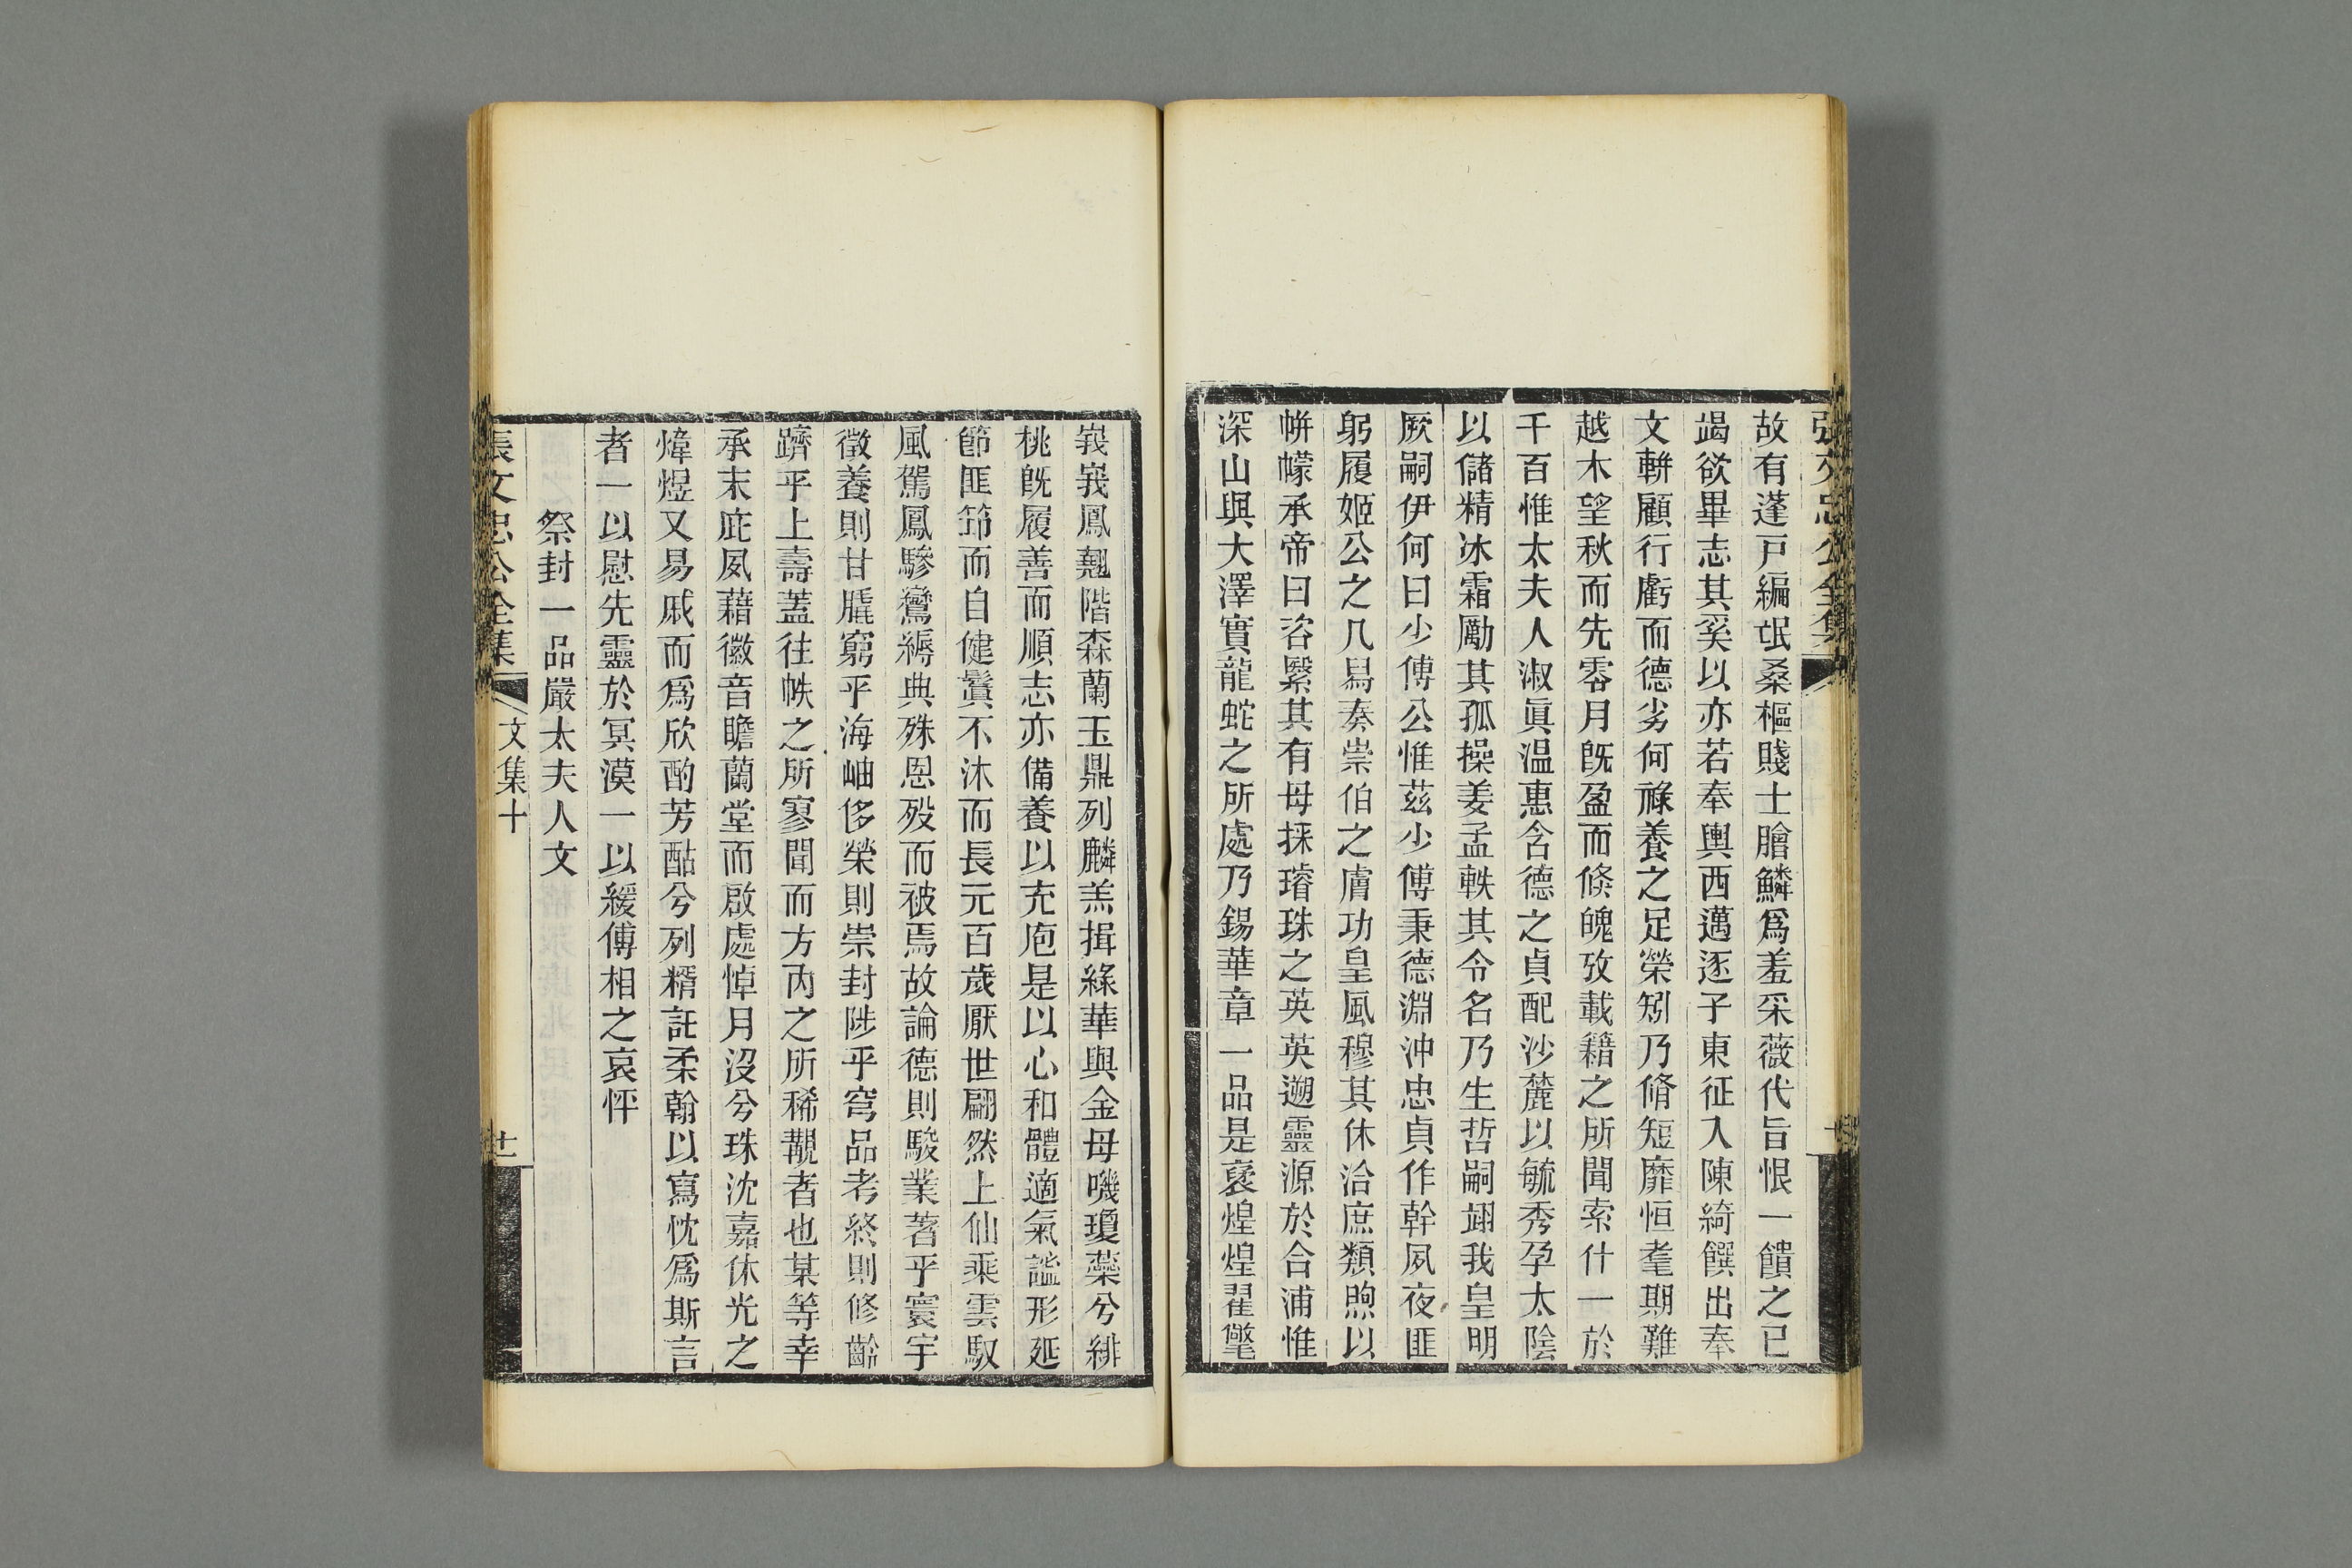 張文忠公全集
故有蓬戸編氓桑樞賤士膾鱗爲羞采薇代旨恨一饋之已
竭欲畢志其奚以亦若奉輿西邁逐子東征入陳綺饌出奉
文軿顧行虧而德劣何祿養之足榮矧乃脩短靡恒耄期難
越木望秋而先零月旣盈而倏魄攷載籍之所聞索什一於
千百惟太夫人淑眞温惠含德之貞配沙麓以毓秀孕太陰
以儲精氷霜勵其孤操姜孟軼其令名乃生哲嗣翊我皇明
厥嗣伊何曰少傅公惟茲少傅秉德淵沖忠貞作幹夙夜匪
躬履姬公之几舄奏崇伯之膚功皇風穆其休洽庶類煦以
帡幪承帝曰咨繄其有母採璿珠之英英遡靈源於合浦惟
深山與大澤實龍蛇之所處乃錫華章一品是褒煌煌翟髦
峩峩鳳翹階森蘭玉鼎列麟羔揖綠華與金母嘰瓊蘂兮緋
桃旣履善而順志亦備養以充庖是以心和體適氣謐形延
節匪笻而自健鬒不沐而長元百歲厭世翩然上仙乘雲馭
風駕鳳驂鸞縟典殊恩殁而被焉故論德則駿業著乎寰宇
徵養則甘膬窮乎海岫侈榮則崇封陟乎穹品考終則修齡
躋乎上壽蓋往帙之所寥聞而方內之所稀覯者也某等幸
承末庇夙藉徽音瞻蘭堂而啟處悼月沒兮珠沈嘉休光之
煒煜又易戚而爲欣酌芳酤兮列糈託柔翰以寫忱爲斯言
者一以慰先靈於冥漠一以緩傅相之哀怦
祭封一品嚴太夫人文
張文忠公全集 文集十 廿一